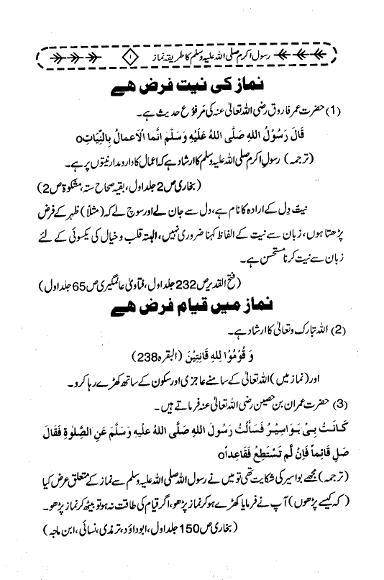 رسول اکرم صلی اللہ علیہ وسلم کا طریقہ نماز
۱
نماز کی نیت فرض ھے
(1) حضرت عمر فاروق رضی اللہ تعالیٰ عنہ کی مرفوع حدیث ہے۔
قَالَ رَسُوْلُ اللهِ صَلَّى اللهُ عَلَيْهِ وَسَلَّمَ اِنَّما الْاَعمالُ بِالنِّيَّاتِ ٥
(ترجمہ) رسول اکرم صلی اللہ علیہ وسلم کا ارشاد ہے کہ اعمال کا دارومدار نیتوں پر ہے۔
(بخاری ص2 جلد اول، بقیہ صحاح ستہ، مشکوٰۃ ص2)
نیت دِل کے ارادہ کا نام ہے، دل سے جان لے اور سوچ لے کہ (مثلاً) ظہر کے فرض
پڑھتا ہوں، زبان سے نیت کے الفاظ کہنا ضروری نہیں، البتہ قلب و خیال کی یکسوئی کے لئے
زبان سے نیت کرنا مستحسن ہے۔
(فتح القدیر ص232 جلد اول، فتاویٰ عالمگیری ص65 جلد اول)
نماز میں قیام فرض ھے
(2) اللہ تبارک و تعالیٰ کا ارشاد ہے۔
وَ قُوْمُوْا لِلّٰهِ قَانِتِيْنَ (البقره 238)
اور (نماز میں) اللہ تعالیٰ کے سامنے عاجزی اور سکون کے ساتھ کھڑے رہا کرو۔
(3) حضرت عمران بن حصین رضی اللہ تعالیٰ عنہ فرماتے ہیں۔
كَانَتْ بِيْ بَوَاسِيْرُ فَسَاَلْتُ رَسُوْلَ اللهِ صَلَّى اللهُ عليه وَسَلَّمَ عَنِ الصَّلٰوةِ فَقَالَ
صَلِ قَائِماً فَاِنْ لَّم تَسْتَطِعْ فَقَاعِداً ٥
(ترجمہ) مجھے بواسیر کی شکایت تھی تو میں نے رسول اللہ صلی اللہ علیہ وسلم سے نماز کے متعلق عرض کیا
(کہ کیسے پڑھوں) آپ نے فرمایا کھڑے ہو کر نماز پڑھو، اگر قیام کی طاقت نہ ہو تو بیٹھ کر نماز پڑھو۔
(بخاری ص150 جلد اول، ابوداؤد، ترمذی، نسائی، ابن ماجہ)